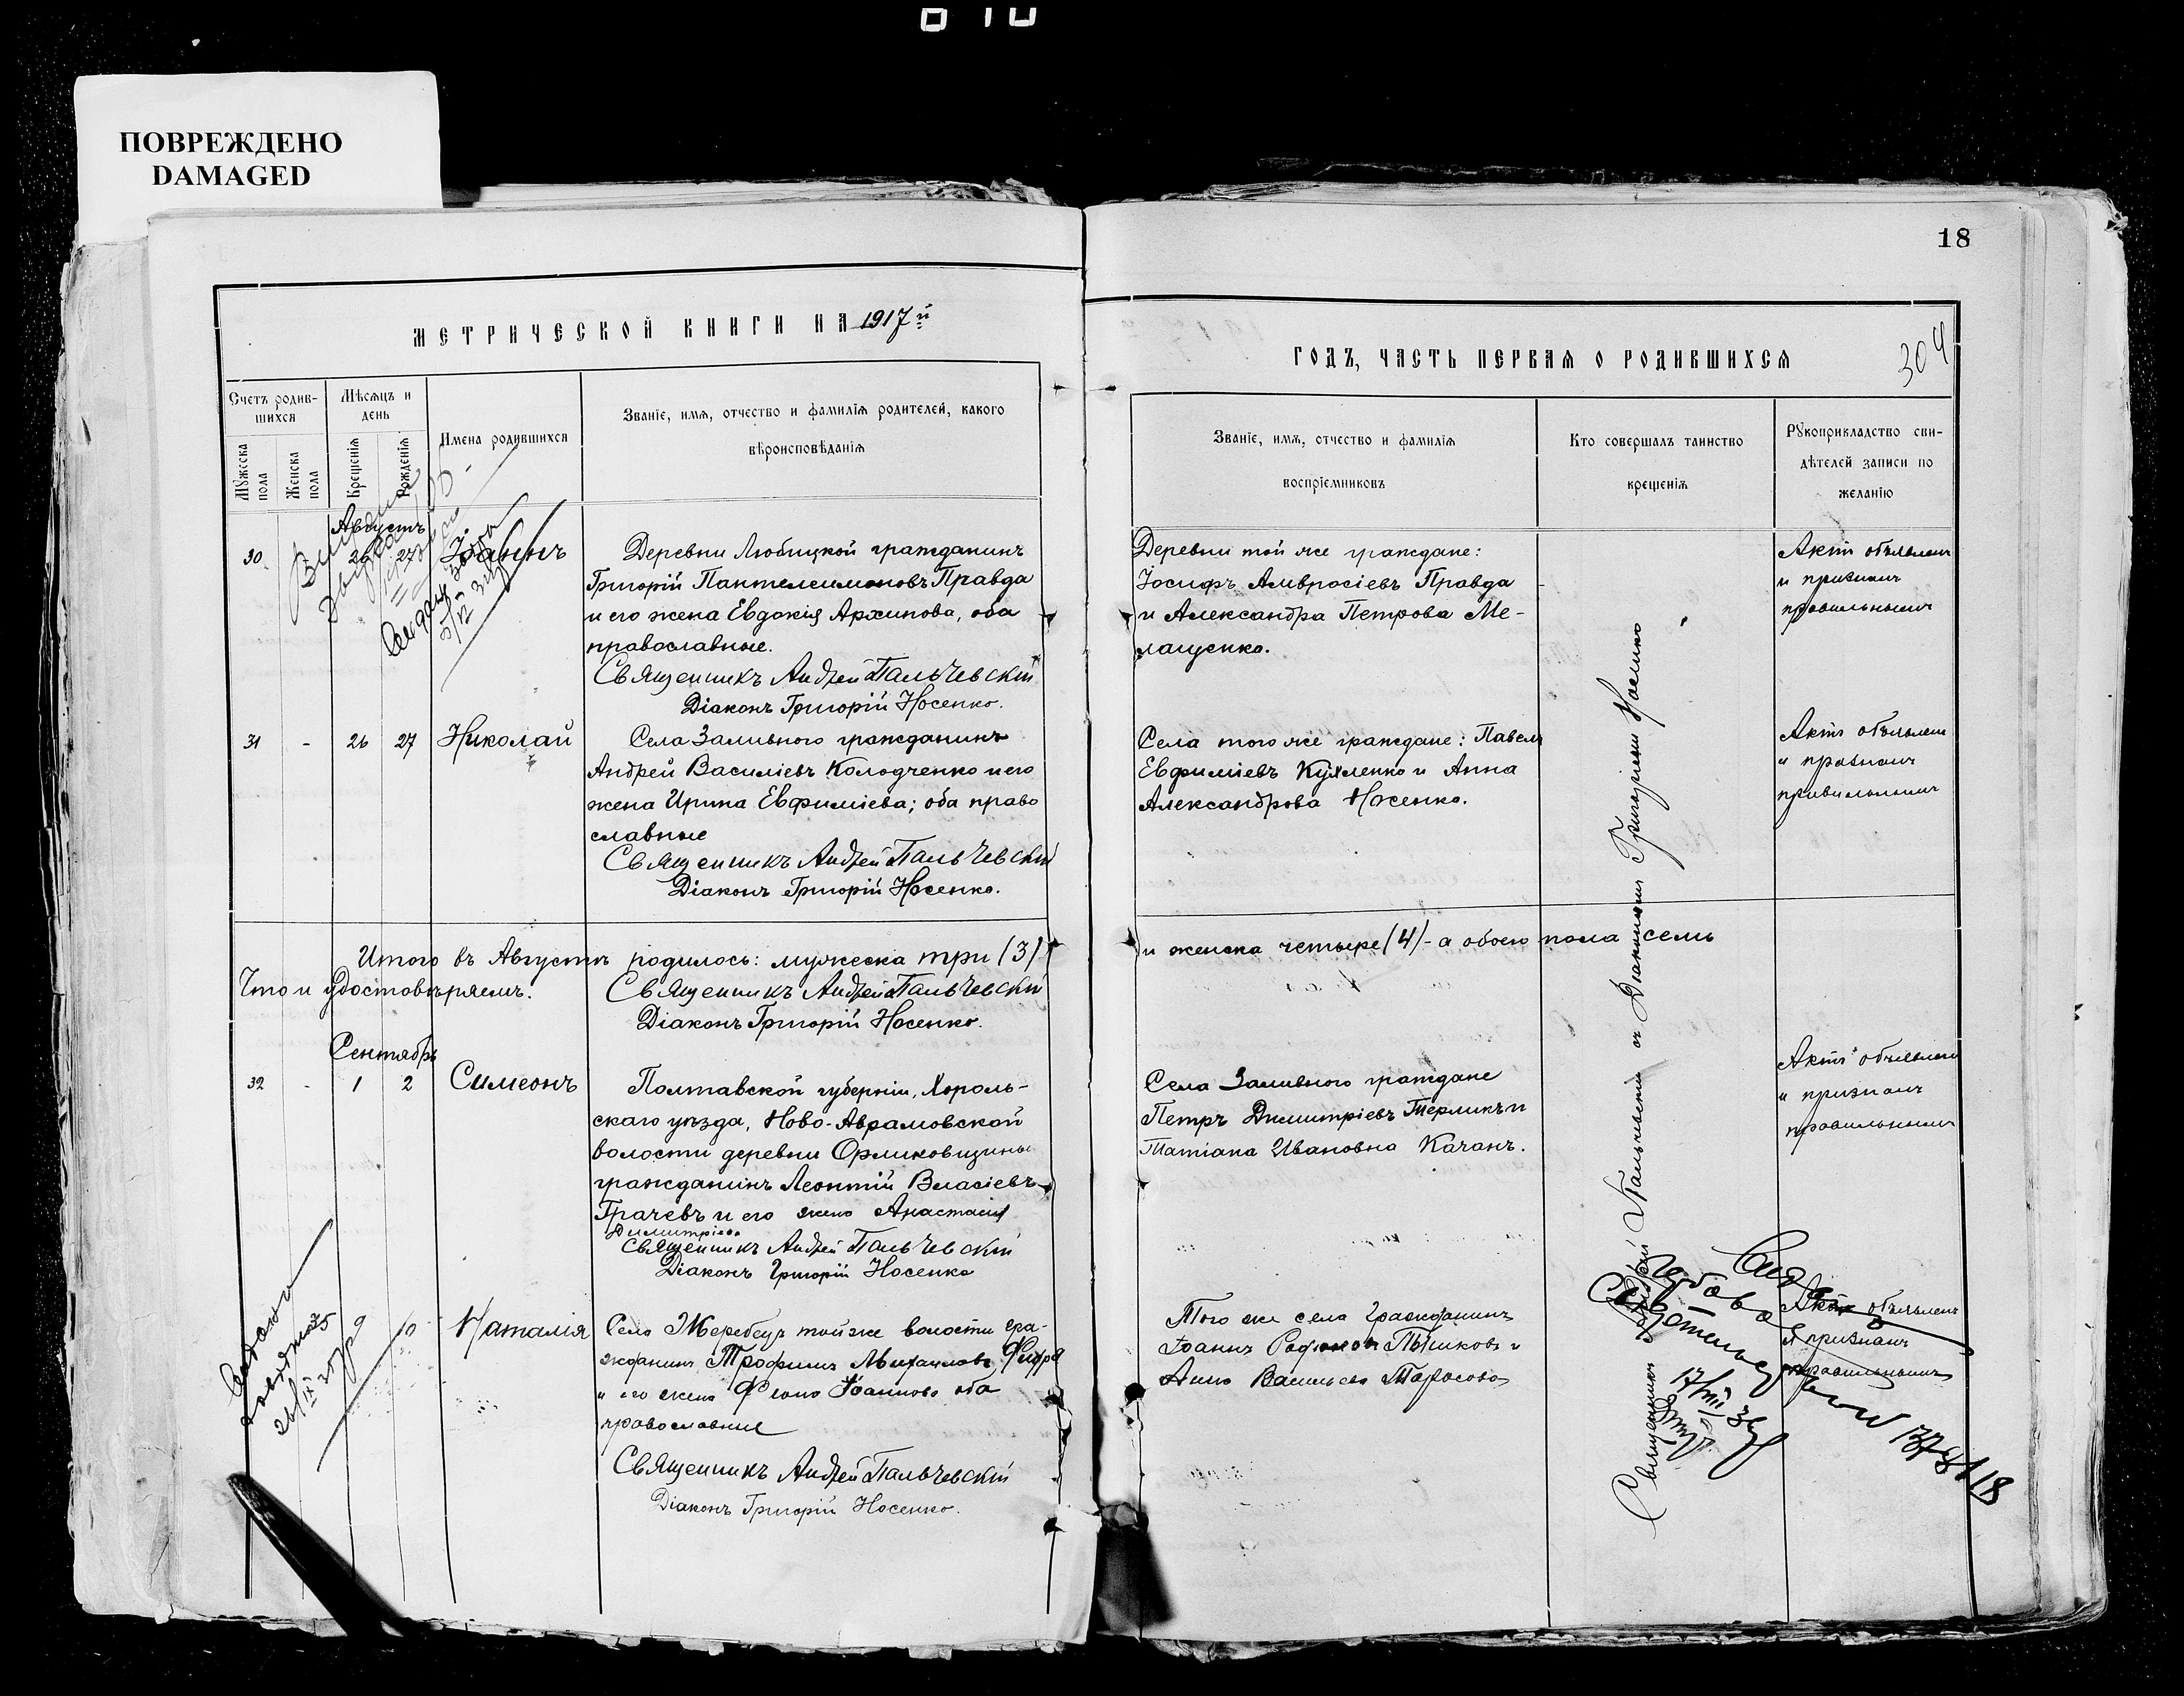 ПОВРЕЖДЕНО
DAMAGED
МЕТРИЧЕСКОЙ КНИГИ НА 1917й
Счетъ родив-
шихся
Мѣсяцъ и
день
Мужеска
пола
Женска
пола
Крещенія
Рожденія
Имена родившихся
Званіе, имя, отчество и фамилія родителей, какого
вѣроисповѣданія
Августъ
30 26 27 Іоаннъ
Деревни Любицкой гражданинъ
Григорій Пантелеимоновъ Правда
и его жена Евдокія Архипова, оба
православные.
Священникъ Андрей Пальчевскій
Діаконъ Григорій Носенко.
31 - 26 27 Николай
Села Заливного гражданинъ
Андрей Василіевъ Колодченко и его
жена Ирина Евфиміева; оба право
славные
Священникъ Андрей Пальчевскій
Діаконъ Григорій Носенко.
Итого въ Августѣ родилось: мужеска три (3)
Что и удостовѣряемъ.
Священникъ Андрей Пальчевскій
Діаконъ Григорій Носенко.
Сентябрь
32 - 1 2 Симеонъ
Полтавской губерніи, Хороль-
скаго уѣзда, Ново-Аврамовской
волости деревни Орликовщины
гражданинъ Леонтій Власіевъ
Грачевъ и его жена Анастасія
Димитріева
Священникъ Андрей Пальчевскій
Діаконъ Григорій Носенко
10 Наталія
Села Жеребецъ той же волости гра-
жданинъ Трофимъ Михаиловъ
и его жена Іоаннова оба
православные
Священникъ Андрей Пальчевскій
Діаконъ Григорій Носенко.
18
304
ГОДЪ, ЧАСТЬ ПЕРВАЯ О РОДИВШИХСЯ
Званіе, имя, отчество и фамилія
воспріемниковъ
Кто совершалъ таинство
крещенія
Рукоприкладство сви-
дѣтелей записи по
желанію
Деревни той же граждане:
Іосифъ Амвросіевъ Правда
и Александра Петрова Ме-
лащенко.
Актъ объявленъ
и признанъ
правильнымъ
Села того же граждане: Павелъ
Евфиміевъ Кухленко и Анна
Александрова Носенко.
Актъ объявленъ
и признанъ
правильнымъ
и женска четыре (4) - а обоего пола семь
Села Заливного граждане
Петръ Димитріевъ Терликъ и
Татіана Ивановна Качанъ.
Актъ объявленъ
и признанъ
правильнымъ
Того же села гражданинъ
Іоаннъ и
Анна Васильева Тарасова
Актъ объявленъ
и признанъ
правильнымъ
Священникъ Андрей Пальчевскій съ Діакономъ Григоріемъ Носенко